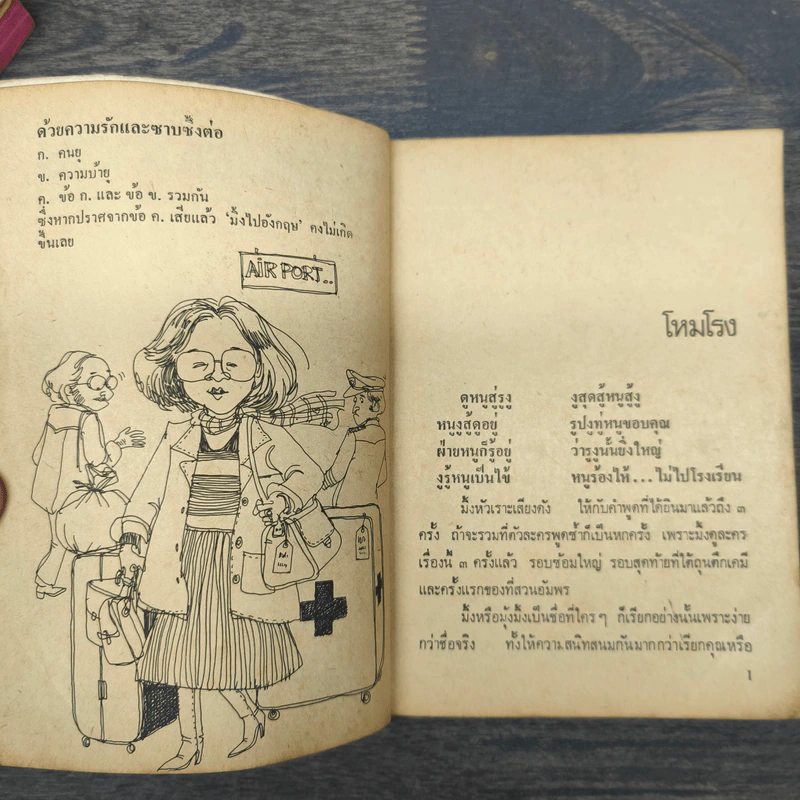 ด้วยความรักและซาบซึ้งต่อ
ก. คนยุ
ข. ความบ้ายุ
ค. ข้อ ก. และ ข้อ ข. รวมกัน
ซึ่งหากปราศจากข้อ ค. เสียแล้ว ‘มิ้งไปอังกฤษ’ คงไม่เกิด
ขึ้นเลย
AIR PORT..
โหมโรง
ดูหนูสู่รูงู งูสุดสู้หนูสู้งู
หนูงูสู้ดูอยู่ รูปงูทู่หนูขอบคุณ
ฝ่ายหนูก็รู้อยู่ ว่ารูงูนั้นยิ่งใหญ่
งูรู้หนูเป็นไข้ หนูร้องไห้...ไม่ไปโรงเรียน
มิ้งหัวเราะเสียงดัง ให้กับคำพูดที่ได้ยินมาแล้วถึง ๓
ครั้ง ถ้าจะรวมที่ตัวละครพูดซ้ำก็เป็นหกครั้ง เพราะมิ้งดูละคร
เรื่องนี้ ๓ ครั้งแล้ว รอบซ้อมใหญ่ รอบสุดท้ายที่ใต้ถุนตึกเคมี
และครั้งแรกของที่สวนอัมพร
มิ้งหรือมุ้งมิ้งเป็นชื่อที่ใครๆ ก็เรียกอย่างนั้นเพราะง่าย
กว่าชื่อจริง ทั้งให้ความสนิทสนมกันมากกว่าเรียกคุณหรือ
1